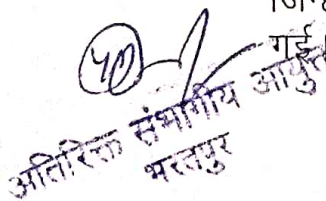 गई
अतिरिक्त संभागीय आयुक्त
भरतपुर